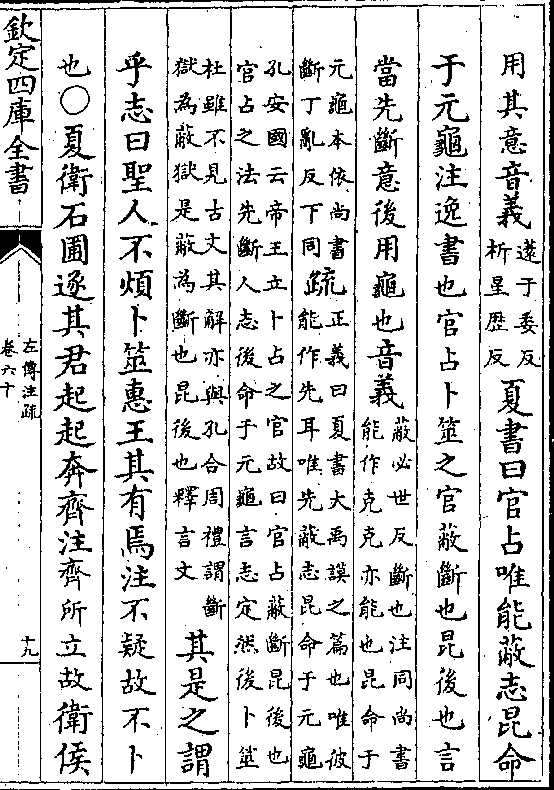 用其意音義薳于委反析星歷反夏書曰官占唯能蔽志昆命
于元龜注逸書也官占卜筮之官蔽斷也昆後也言
當先斷意後用龜也音義蔽必世反斷也注同尚書能作克克亦能也昆命于
元龜本依尚書斷丁亂反下同疏正義曰夏書大禹謨之篇也唯彼能作先耳唯先蔽志昆命于元龜
孔安國云帝王立卜占之官故曰官占蔽斷昆後也官占之法先斷人志後命于元龜言志定然後卜筮
杜雖不見古文其解亦與孔合周禮謂斷獄為蔽獄是蔽為斷也昆後也釋言文其是之謂
乎志曰聖人不煩卜筮惠王其有焉注不疑故不卜
也○夏衛石圃逐其君起起奔齊注齊所立故衛侯
欽定四庫全書
左傳注疏
卷六十
十九